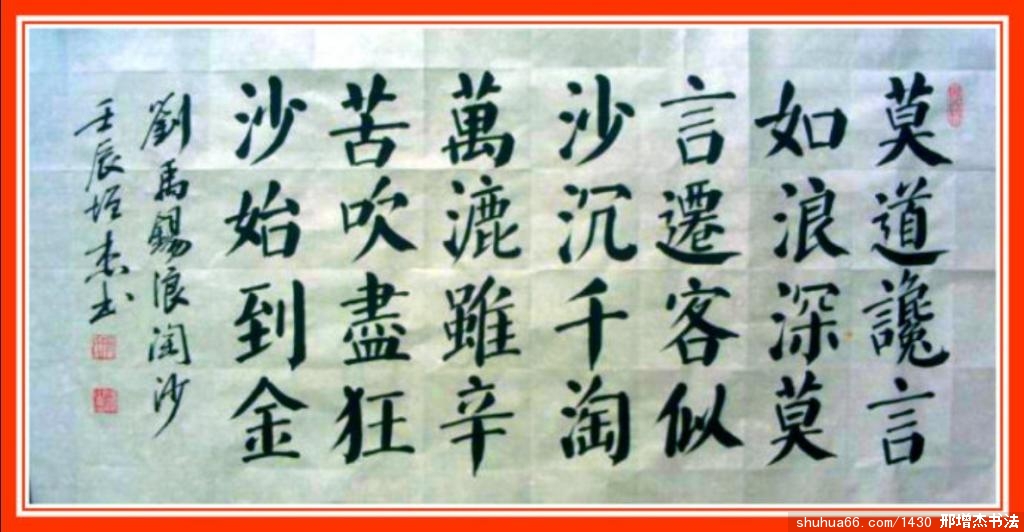 莫道讒言
如浪深莫
言遷客似
沙沉千淘
萬漉雖辛
苦吹盡狂
沙始到金
劉禹錫浪淘沙
壬辰增杰书
shuhua66.com/1430 邢增杰书法